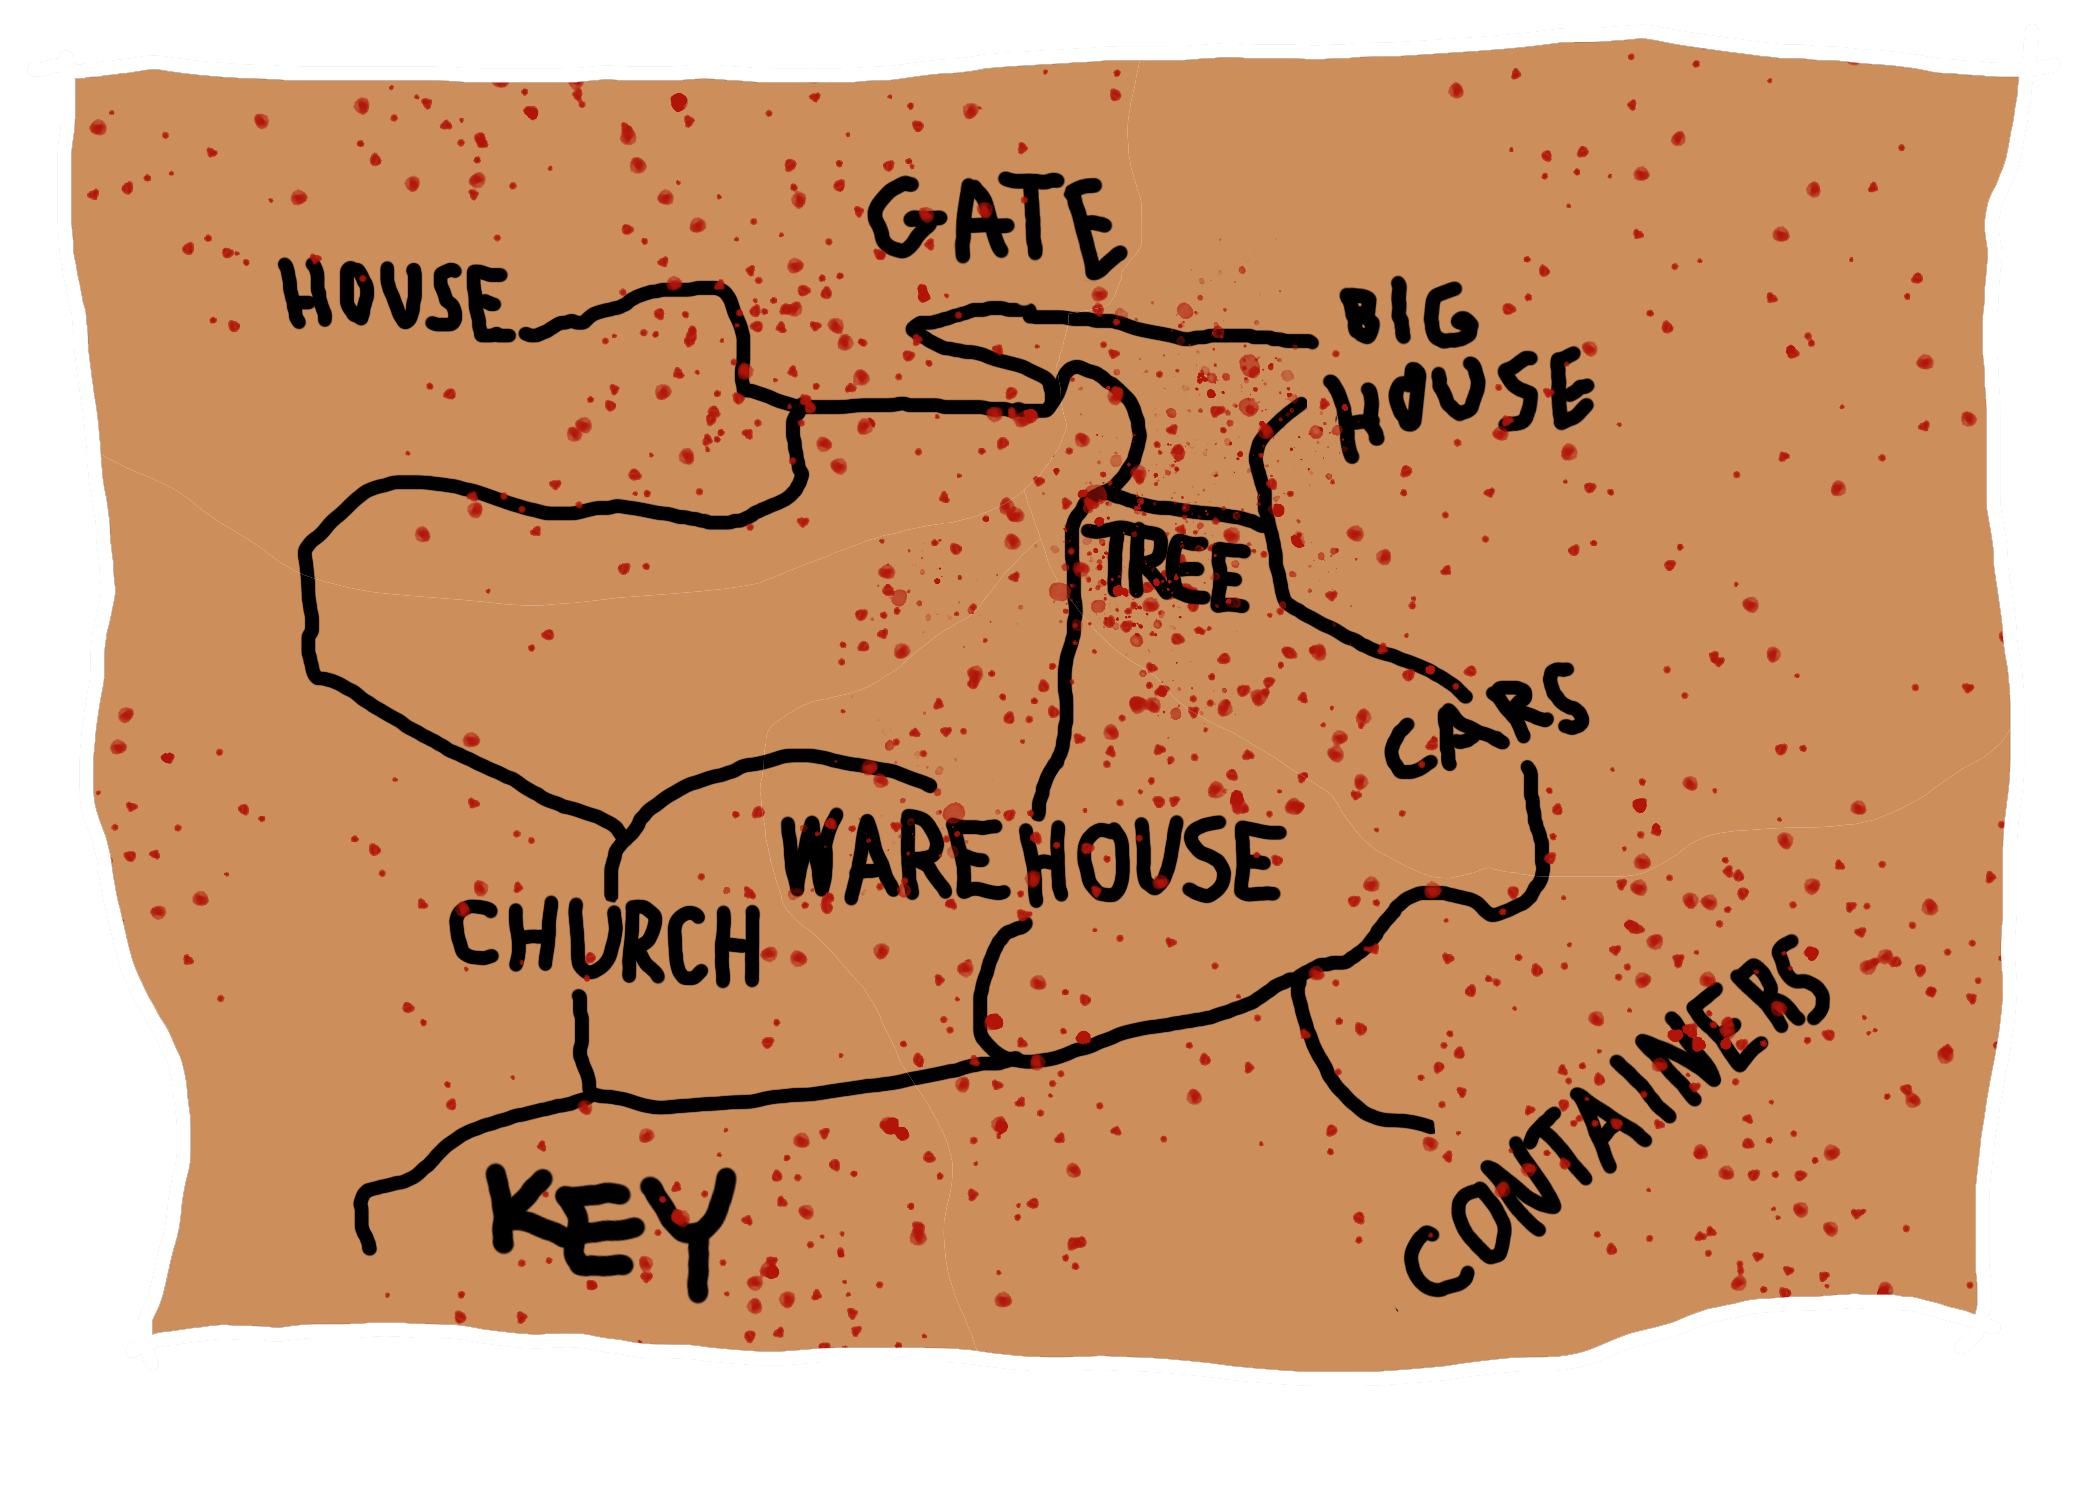 GATE
HOUSE
BIG
HOUSE
TREE
CARS
WAREHOUSE
CHURCH
CONTAINERS
KEY